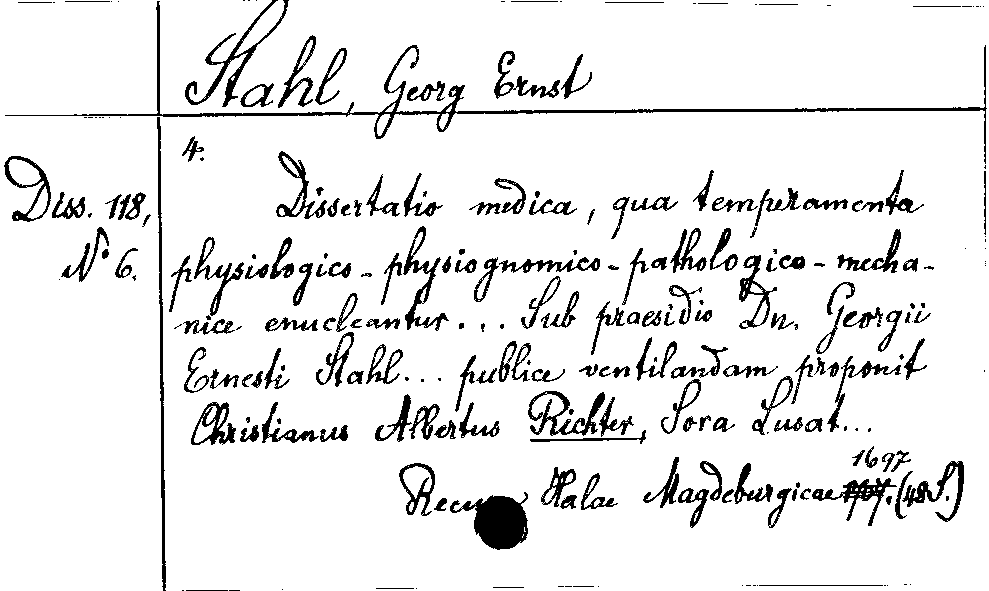 Stahl, Georg Ernst
4.
Diss. 118,
No 6.
Dissertatio medica, qua temperamenta
physiologico-physiognomico-pathologico-mecha-
nice enucleantur... Sub praesidio Dn. Georgii
Ernesti Stahl... publice ventilandam proponit
Christianus Albertus Richter, Sora Lusat...
1697
Halae Magdeburgicae (48 S.)